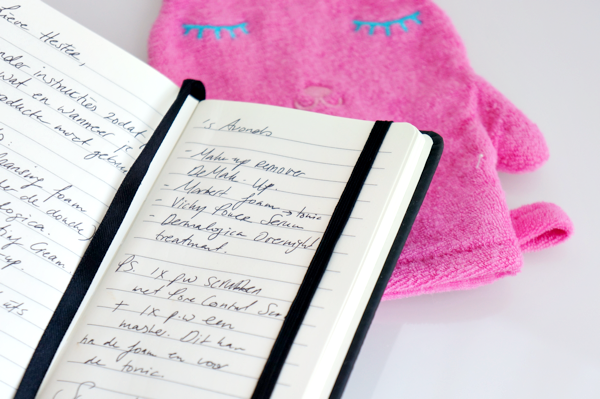 lieve Hester,
nder instructies zodat
wat en wanneer je
producten moet gebru
ansing foam
de douche)
logica
ting Cream
-up.
's Avonds
- Make-up remover
DeMake Up
- Market foam → tonic
- Vichy Power Serum
- Dermalogica Overnight
treatment.
PS 1x p.w scrubben
met Pore Control Scr
+ 1x p.w een
masker. Dit kan
na de foam en voor
de tonic.